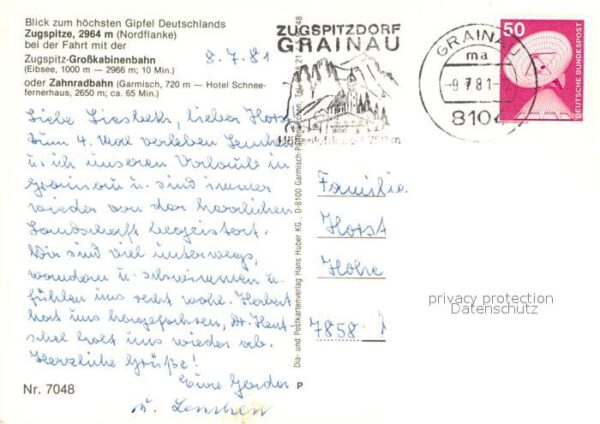 Blick zum höchsten Gipfel Deutschlands
Zugspitze, 2964 m (Nordflanke)
bei der Fahrt mit der
Zugspitz-Großkabinenbahn
(Eibsee, 1000 m — 2966 m; 10 Min.)
oder Zahnradbahn (Garmisch, 720 m — Hotel Schnee-
fernerhaus, 2650 m; ca. 65 Min.)
8.7.81
Liebe Liesbeth, lieber Horst
Zum 4. Mal verleben Lenchen
u. ich unseren Urlaub in
Grainau u. sind immer
wieder von der herrlichen
Landschaft begeistert.
Wir sind viel unterwegs,
wandern u. schwimmen u.
fühlen uns recht wohl. Herbert
hat uns hergefahren,
holt uns wieder ab.
Herzliche Grüße!
Eure Gerda
u. Lenchen
Nr. 7048
P
Dia- und Postkartenverlag Hans Huber KG, D-8100 Garmisch-Partenkirchen
ZUGSPITZDORF
GRAINAU
GRAINAU
ma
-9 7 81-
8104
50
DEUTSCHE BUNDESPOST
Familie
Horst
7858
privacy protection
Datenschutz